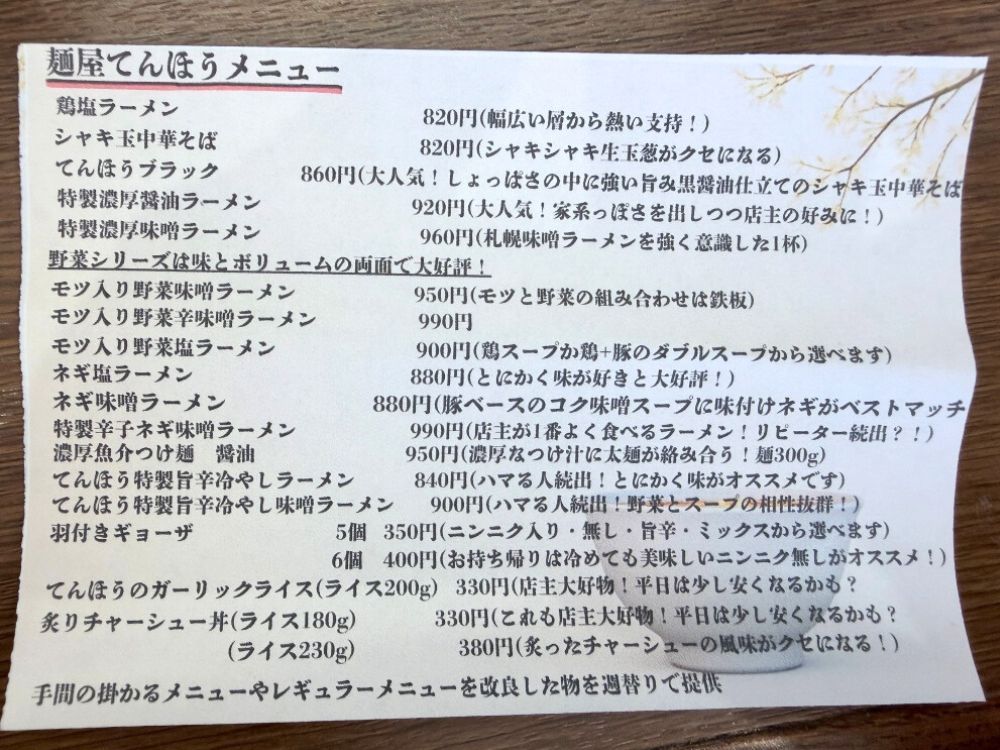 麺屋てんほうメニュー
鶏塩ラーメン 820円(幅広い層から熱い支持！)
シャキ玉中華そば 820円(シャキシャキ生玉葱がクセになる)
てんほうブラック 860円(大人気！しょっぱさの中に強い旨み黒醤油仕立てのシャキ玉中華そば
特製濃厚醤油ラーメン 920円(大人気！家系っぽさを出しつつ店主の好みに！)
特製濃厚味噌ラーメン 960円(札幌味噌ラーメンを強く意識した1杯)
野菜シリーズは味とボリュームの両面で大好評！
モツ入り野菜味噌ラーメン 950円(モツと野菜の組み合わせは鉄板)
モツ入り野菜辛味噌ラーメン 990円
モツ入り野菜塩ラーメン 900円(鶏スープか鶏+豚のダブルスープから選べます)
ネギ塩ラーメン 880円(とにかく味が好きと大好評！)
ネギ味噌ラーメン 880円(豚ベースのコク味噌スープに味付けネギがベストマッチ
特製辛子ネギ味噌ラーメン 990円(店主が1番よく食べるラーメン！リピーター続出？！)
濃厚魚介つけ麺 醤油 950円(濃厚なつけ汁に太麺が絡み合う！麺300g)
てんほう特製旨辛冷やしラーメン 840円(ハマる人続出！とにかく味がオススメです)
てんほう特製旨辛冷やし味噌ラーメン 900円(ハマる人続出！野菜とスープの相性抜群！)
羽付きギョーザ 5個 350円(ニンニク入り・無し・旨辛・ミックスから選べます)
6個 400円(お持ち帰りは冷めても美味しいニンニク無しがオススメ！)
てんほうのガーリックライス(ライス200g) 330円(店主大好物！平日は少し安くなるかも？
炙りチャーシュー丼(ライス180g) 330円(これも店主大好物！平日は少し安くなるかも？
(ライス230g) 380円(炙ったチャーシューの風味がクセになる！)
手間の掛かるメニューやレギュラーメニューを改良した物を週替りで提供